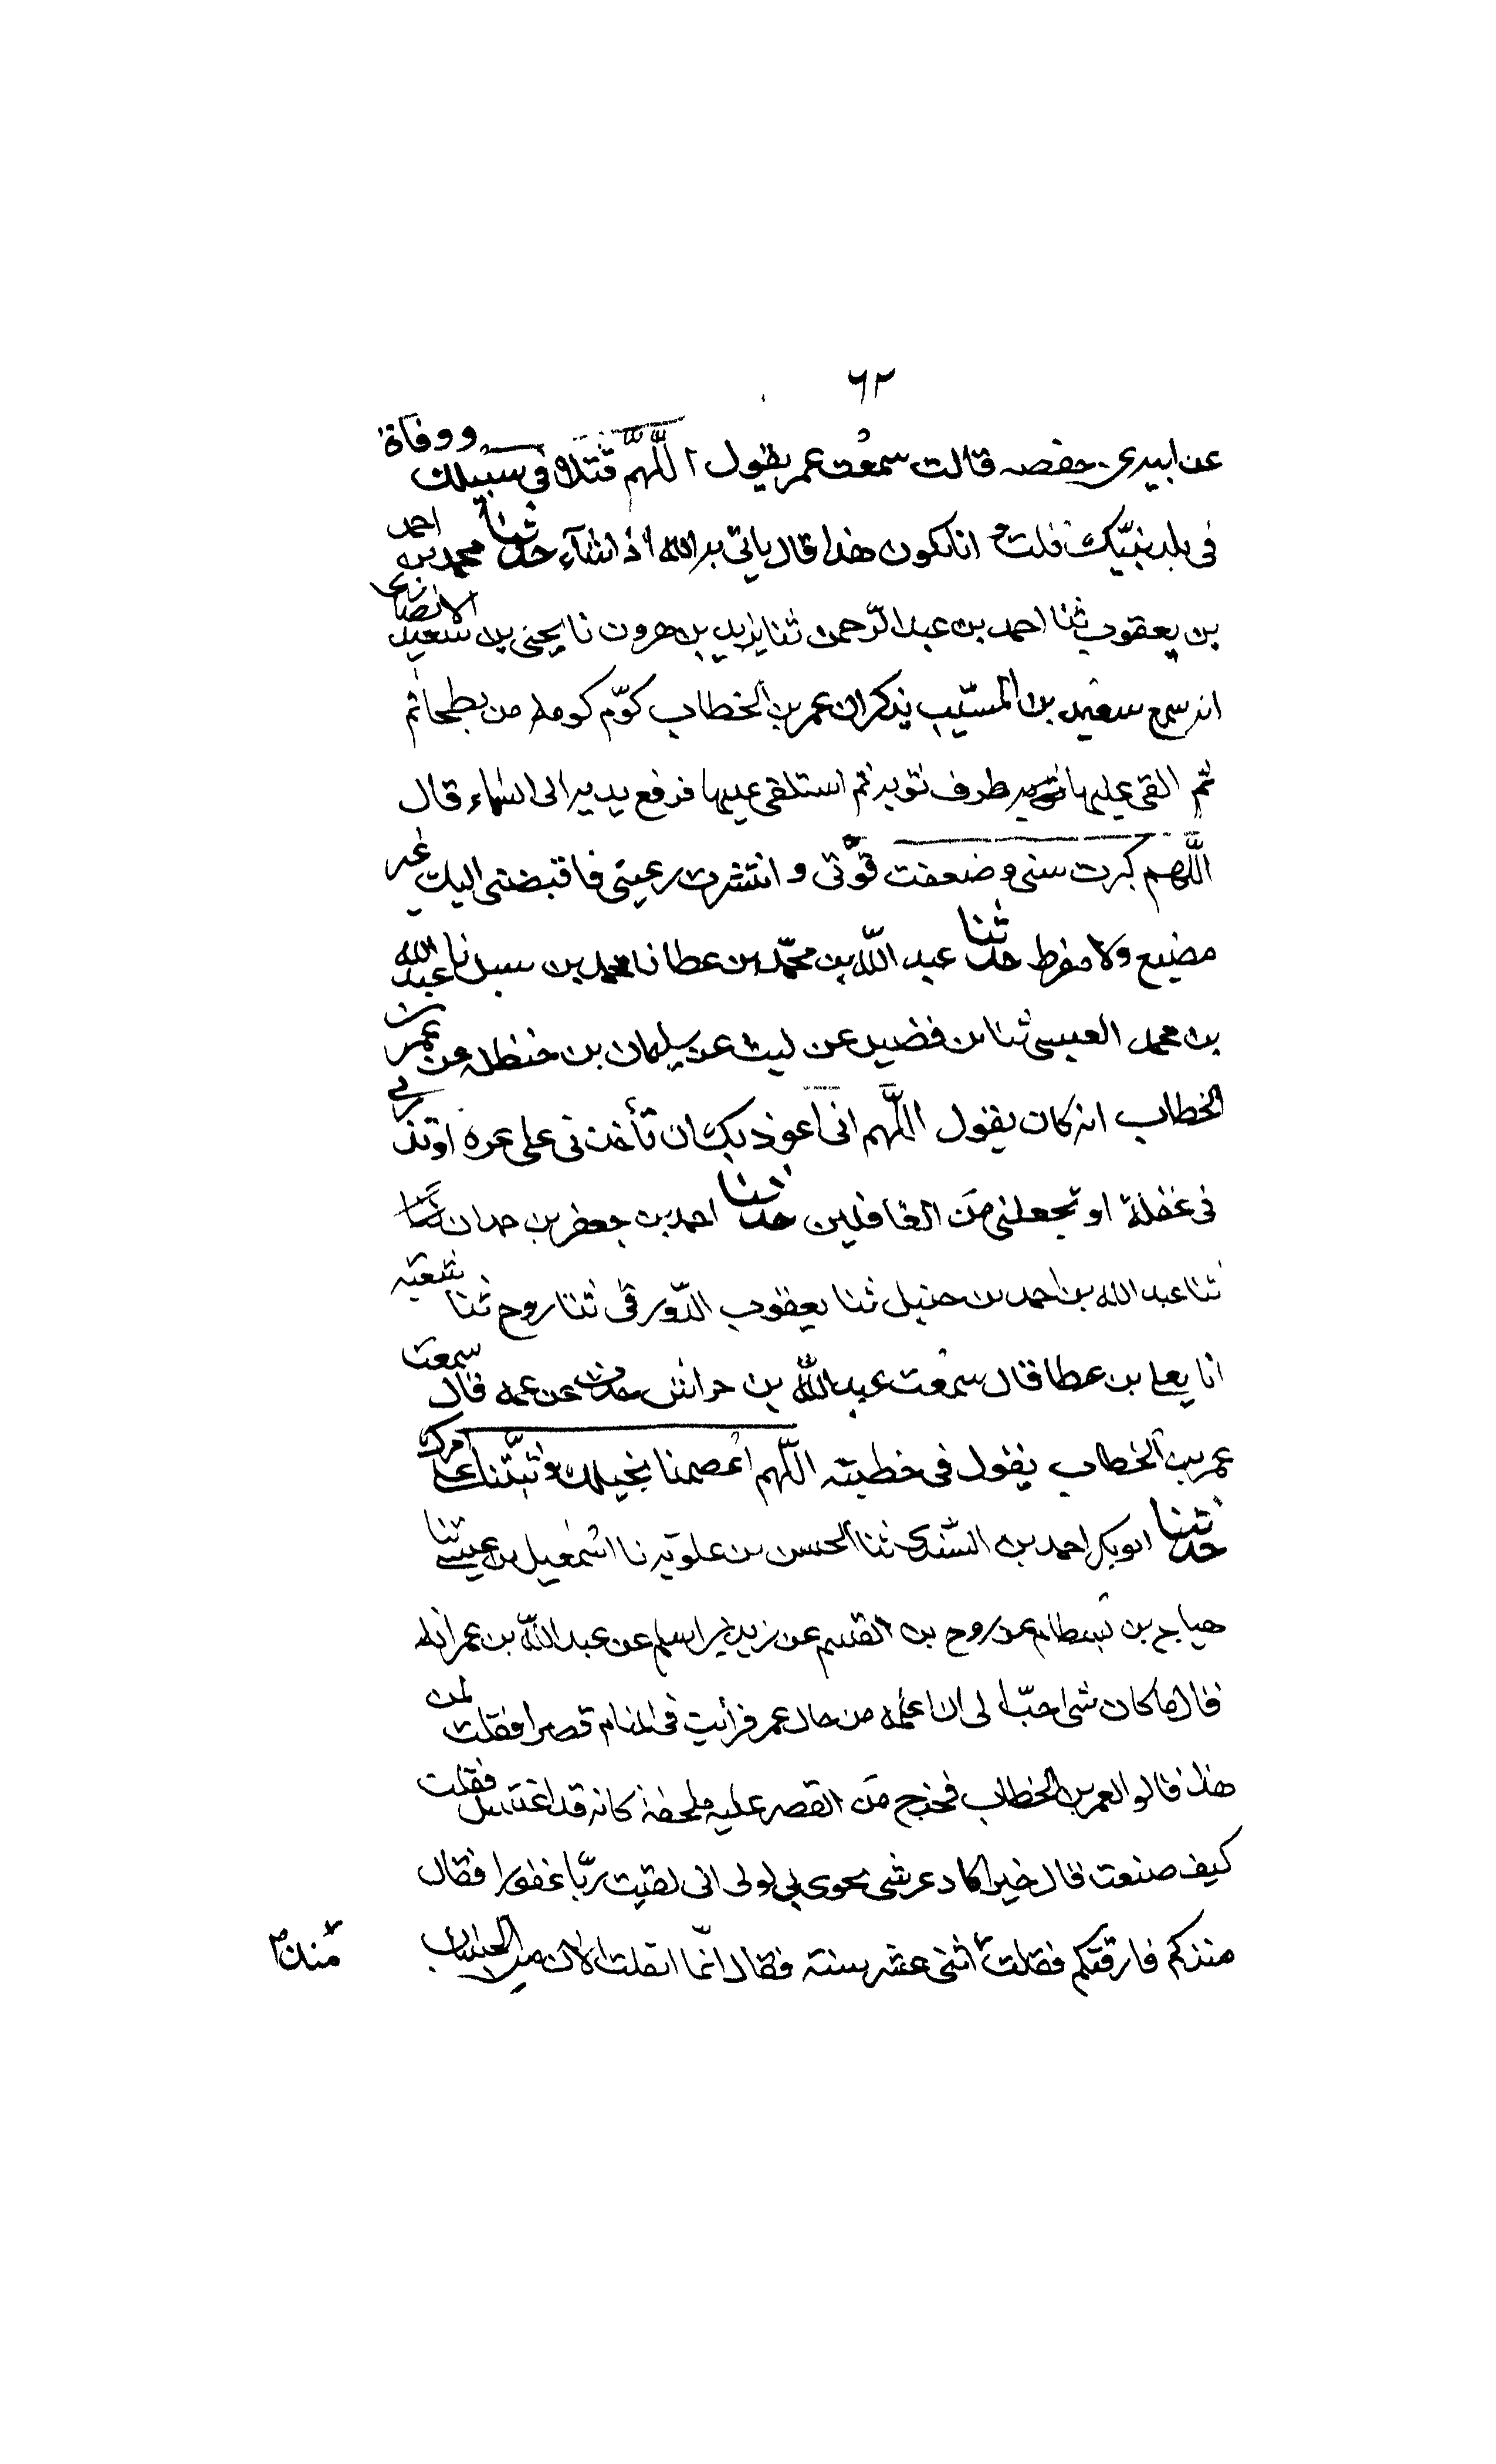 ٦٢
عن ابيه عن حفصه قالت سمعت عمر يقول اللهم قتلا فى سبيلك ووفاة
فى بلد نبيّك قلت انا يكون هذا قال ياتى به الله اذا شآء حدثنا محمد بن احمد
بن يعقوب ثنا احمد بن عبد الرّحمن ثنا يزيد بن هرون نا يحيى بن سعيد الانصارى
انه سمع سعيد بن المسيّب يذكر ان عمر بن الخطاب كوّم كومة من بطحا ثم
ثم القى عليها طرف ثوبه ثم استلقى عليها فرفع يديه الى السماء قال
اللّهم كبرت سنى وضعفت قوّتى وانتشرت رعيتى فاقبضنى اليك غير
مضيع ولا مفرط حدثنا عبد اللّه بن محمّد بن عطا نا محمد بن سبل نا عبد الله
بن محمد العبسى ثنا بن فضيل عن ليث عن سليمان بن حنظله عن عمر بن
الخطاب انه كان يقول اللّهم انى اعوذ بك ان تأخذنى على غره او تذرنى
فى غفلة او تجعلنى من الغافلين حدثنا احمد بن جعفر بن حمدان
ثنا عبد الله بن احمد بن حنبل ثنا يعقوب الدّورقى ثنا روح ثنا شعبه
انا يعلى بن عطا قال سمعت عبد اللّه بن خراش يحدث عن عمه قال سمعت
عمر بن الخطاب يقول فى خطبته اللّهم اعصمنا بحبلك وثبّتنا على امرك
حدثنا ابو بكر احمد بن السّندى ثنا الحسن بن علويه نا اسمعيل بن عيسى ثنا
هياج بن بسطام عن روح بن القسم عن زيد بن اسلم عن عبد اللّه بن عمر انه
قال ما كان شى احبّ الى ان اعلمه من حال عمر فرأيت فى المنام قصرا فقلت لمن
هذا قالوا لعمر بن الخطاب فخرج من القصر عليه ملحفة كانه قد اغتسل فقلت
كيف صنعت قال خيرا كاد عرشى يهوى بى لولى انى لقيت ربّا غفورا فقال
منذ كم فارقتكم فقلت اثنى عشر سنة فقال انّما انفلت الان من الحساب